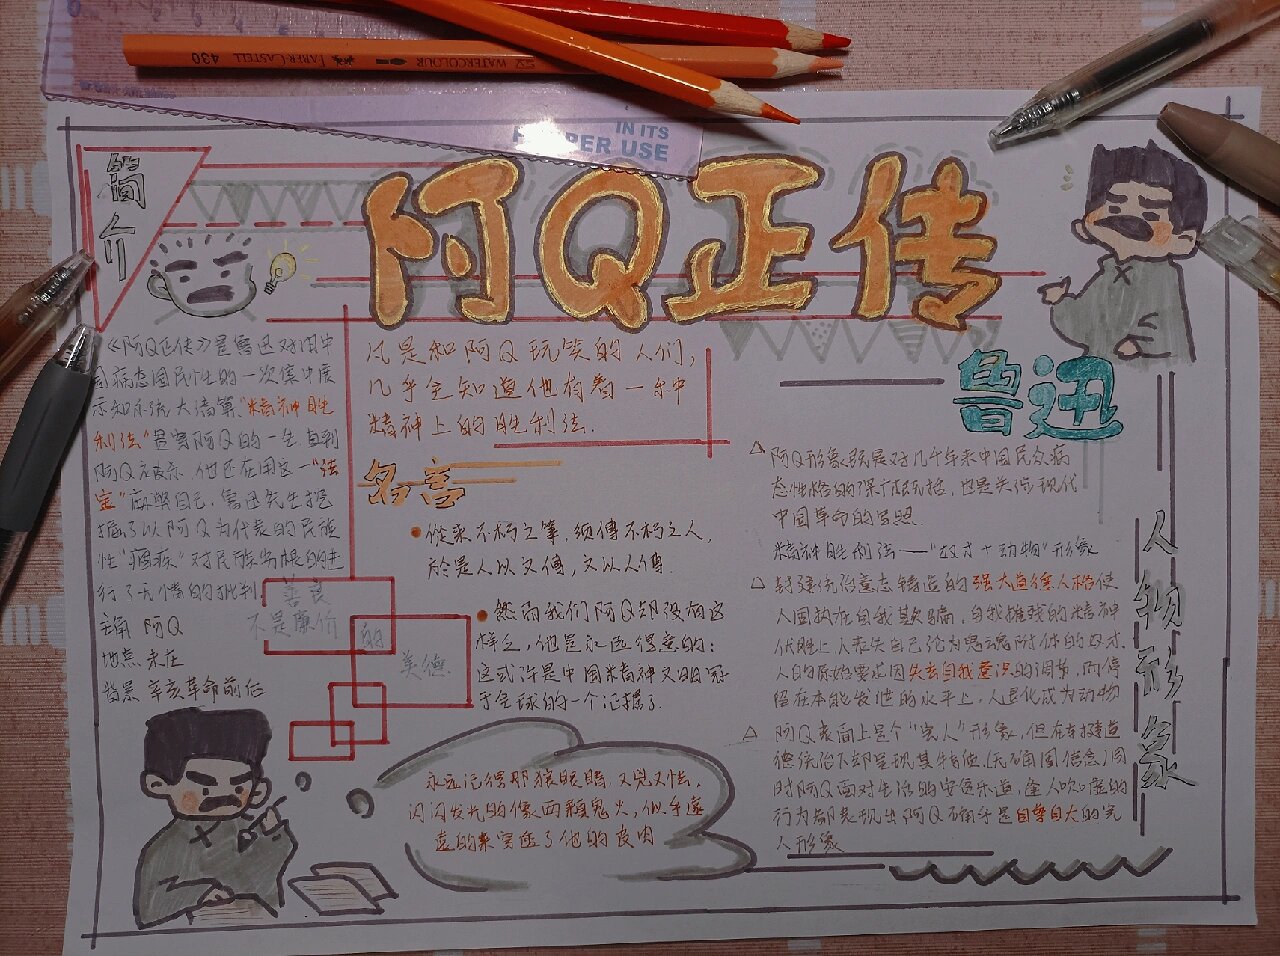 430 FABER CASTELL WATERCOLOUR
IN ITS
PER USE
简介
阿Q正传
鲁迅
《阿Q正传》是鲁迅对旧中
国病态国民性的一次集中展
示和系统大清算."精神胜
利法"是贯阿Q的一生直到
阿Q 他还在用这一"法
宝"麻醉自己.鲁迅先生把
以阿Q为代表的民族
性"痼疾"对民族劣根的进
行了无情的批判.
主角 阿Q
地点 未庄
背景 辛亥革命前后
善良
不是廉价
的
美德
凡是和阿Q玩笑的人们,
几乎全知道他有着一种
精神上的胜利法.
名言
从来不朽之笔,须传不朽之人,
於是人以文传,文以人传.
然而我们阿Q却没有这
样乏,他是永远得意的:
这或许是中国精神文明冠
于全球的一个证据了.
永远记得那狼眼睛,又凶又怯,
闪闪发光的像两颗鬼火,似乎远
远的来穿透了他的皮肉
人物形象
阿Q形象既是对几千年来中国民众病
态性格的深广概括,也是失 现代
中国革命的思想.
精神胜利法——"奴才+动物"形象
封建统治意志铸造的强大道德人格使
人围执在自我欺骗,自我摧残的精神
优胜上人丧失自己沦为愚魂附体的奴才.
人的原始要求因失去自我意识的调节,而停
留在本能发泄的水平上,人退化成为动物
阿Q表面上是个"完人"形象,但在封建道
德统治下却呈现其 使.(无确固信念)同
时阿Q面对生活的安贫乐道,逢人吹嘘的
行为都表现出阿Q确乎是自尊自大的完
人形象